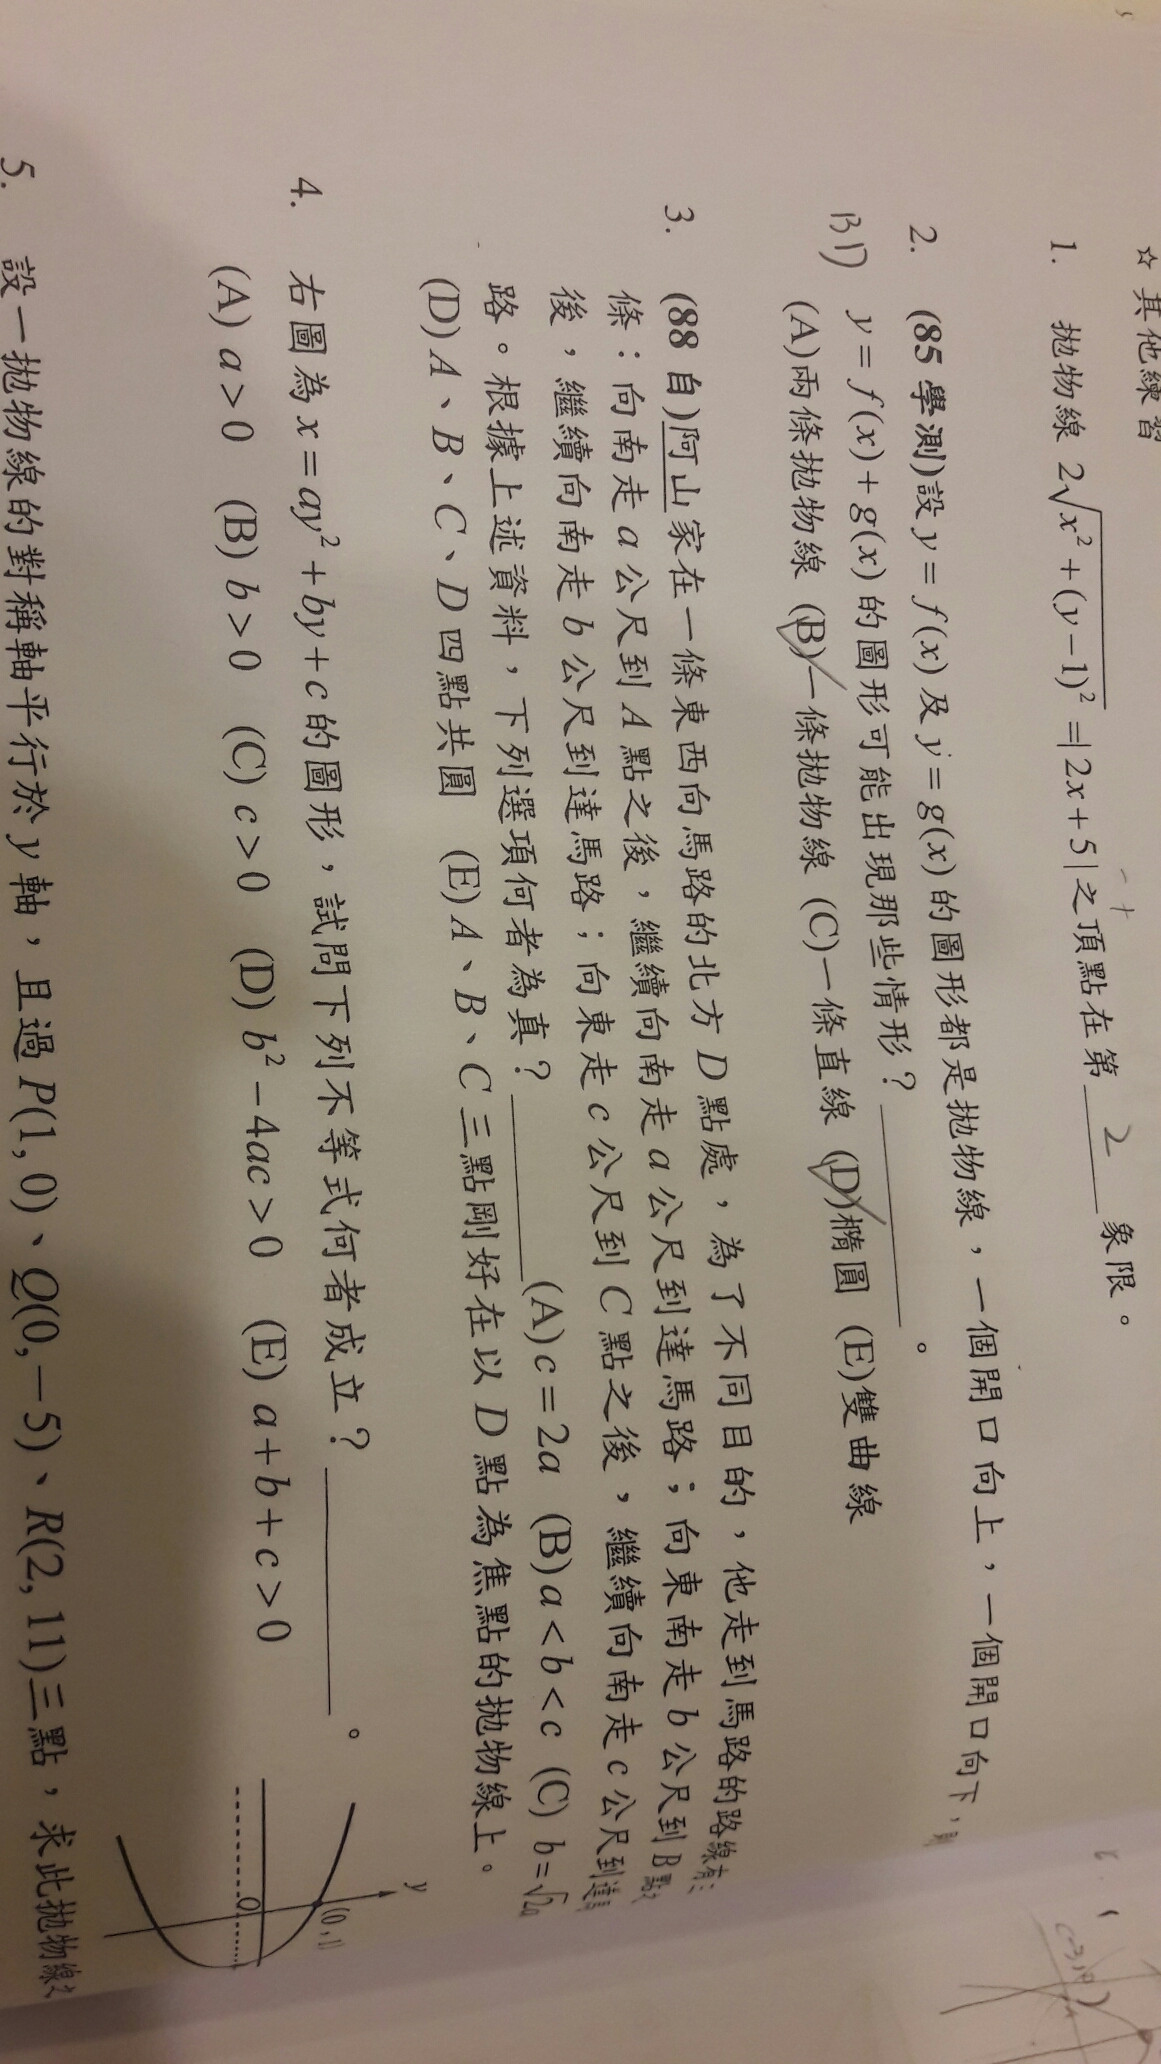 ☆其他練習
1. 拋物線 2√x²+(y−1)² =|2x+5|之頂點在第 2 象限。
− +
2. (85 學測)設 y=f(x) 及 y=g(x) 的圖形都是拋物線，一個開口向上，一個開口向下，則
BD y=f(x)+g(x) 的圖形可能出現那些情形？____。
(A)兩條拋物線 (B)一條拋物線 (C)一條直線 (D)橢圓 (E)雙曲線
3. (88 自)阿山家在一條東西向馬路的北方 D 點處，為了不同目的，他走到馬路的路線有三
條：向南走 a 公尺到 A 點之後，繼續向南走 a 公尺到達馬路；向東南走 b 公尺到 B 點之
後，繼續向南走 b 公尺到達馬路；向東走 c 公尺到 C 點之後，繼續向南走 c 公尺到達馬
路。根據上述資料，下列選項何者為真？____(A) c=2a (B) a<b<c (C) b=√2a
(D) A、B、C、D 四點共圓 (E) A、B、C 三點剛好在以 D 點為焦點的拋物線上。
4. 右圖為 x=ay²+by+c 的圖形，試問下列不等式何者成立？____。
(A) a>0 (B) b>0 (C) c>0 (D) b²−4ac>0 (E) a+b+c>0
y
(0,1)
O
5. 設一拋物線的對稱軸平行於 y 軸，且過 P(1,0)、Q(0,−5)、R(2,11)三點，求此拋物線之